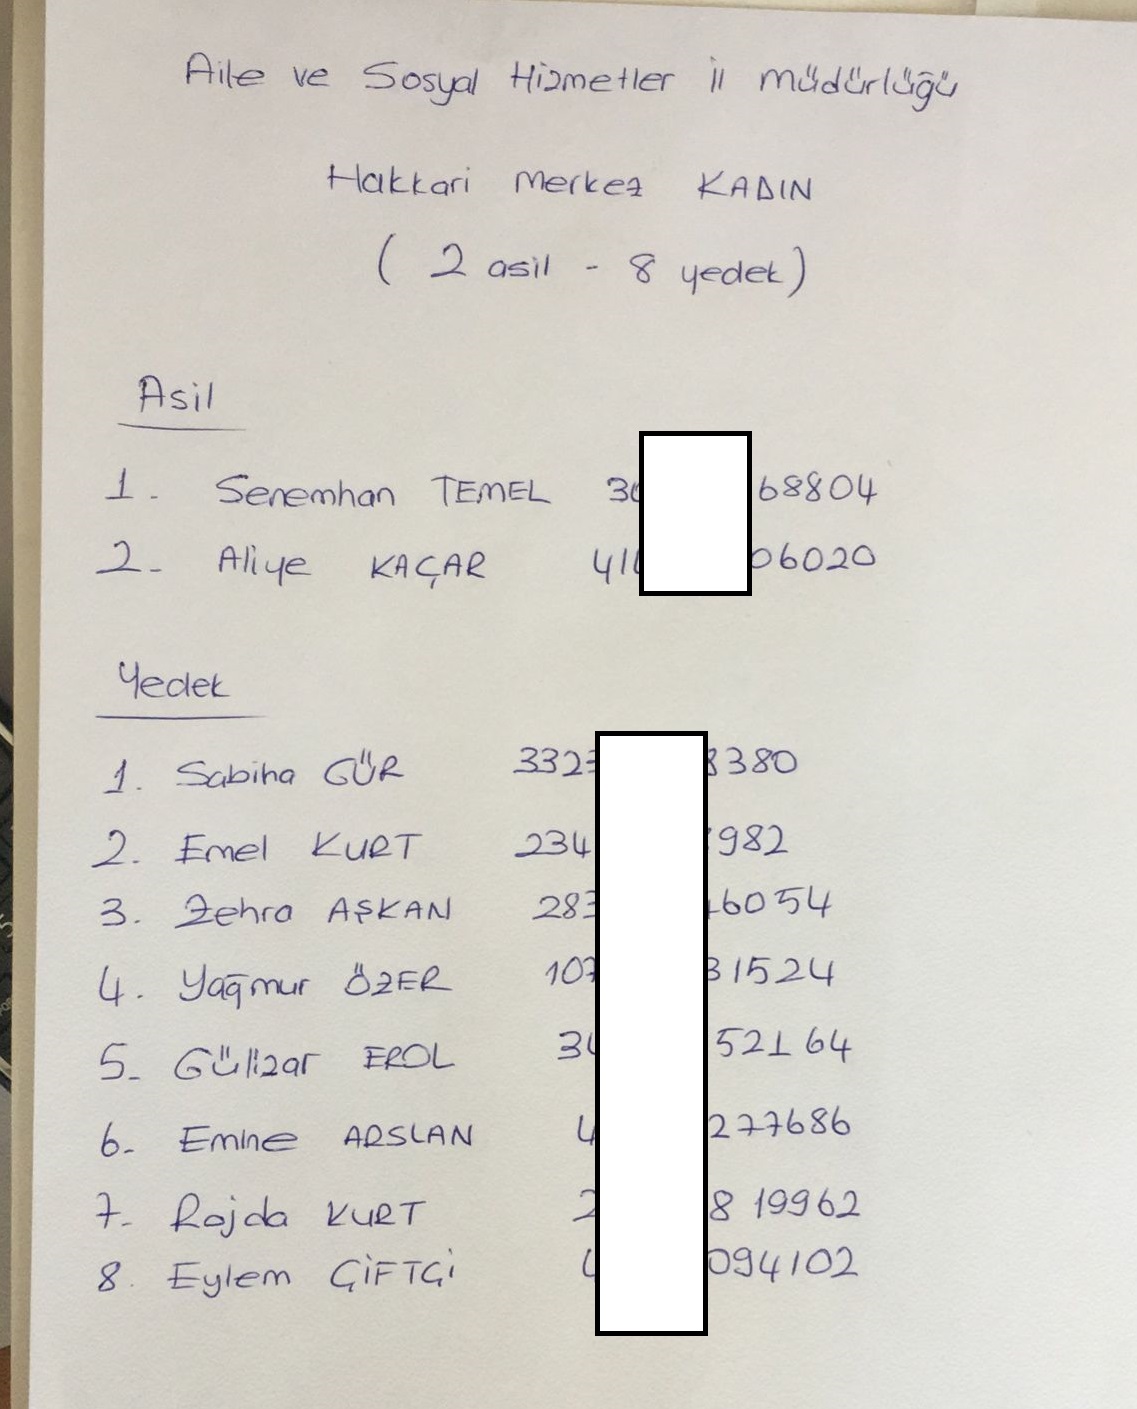 Aile ve Sosyal Hizmetler il müdürlüğü
Hakkari Merkez KADIN
( 2 asil - 8 yedek)
Asil
1. Senemhan TEMEL 30 68804
2. Aliye KAÇAR 41 06020
Yedek
1. Sabiha GÜR 332 8380
2. Emel KURT 234 982
3. Zehra AŞKAN 28 6054
4. Yağmur ÖZER 10 31524
5. Gülizar EROL 3 52164
6. Emine ARSLAN 4 277686
7. Rojda KURT 2 8 19962
8. Eylem ÇİFTÇİ 094102